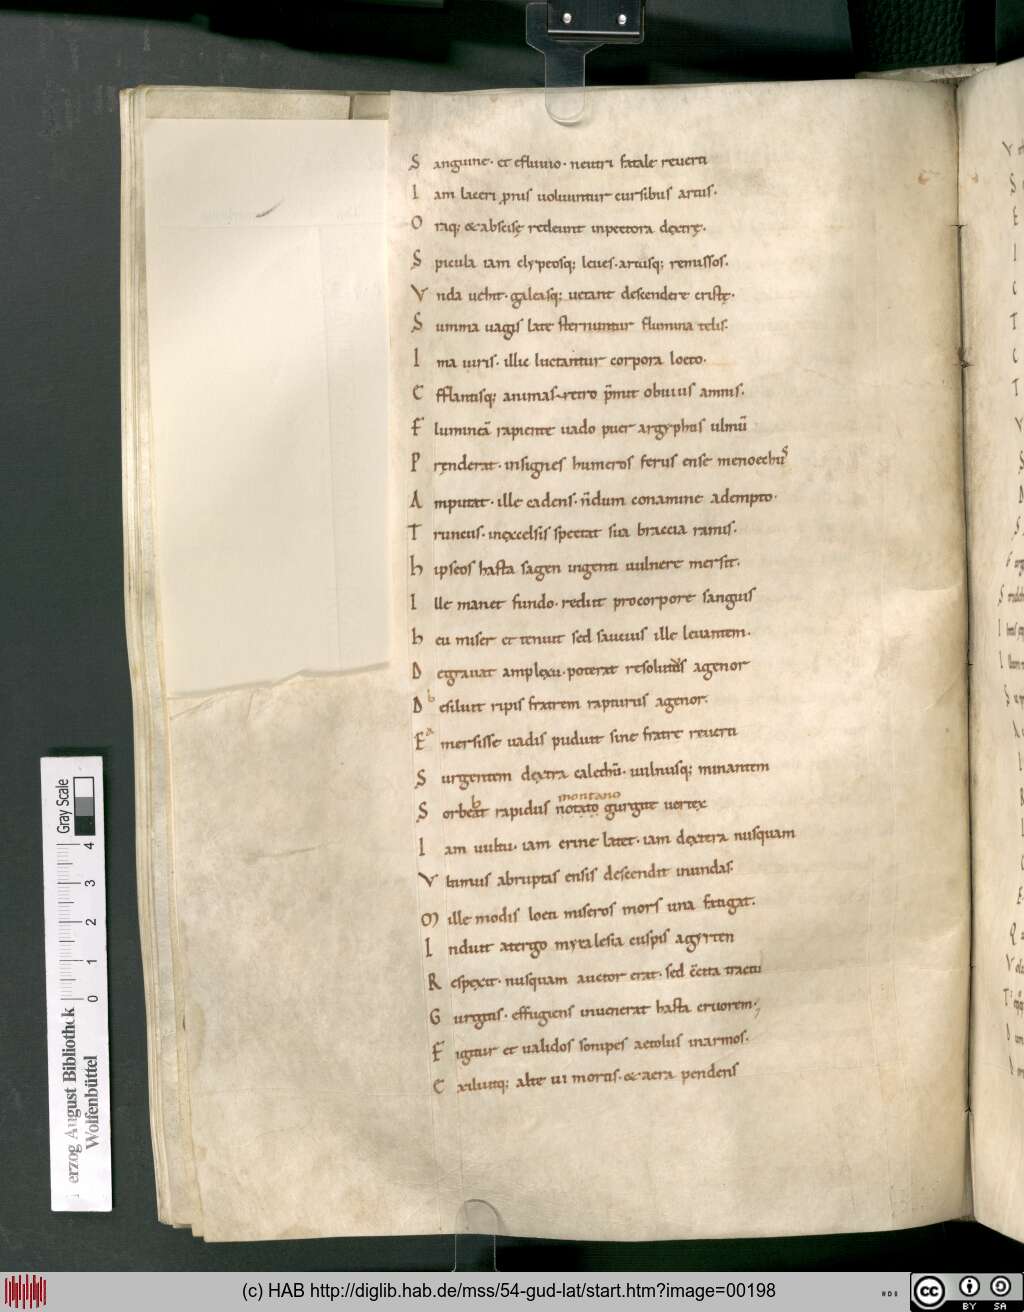 S anguine· et effluuio· neutri fatale reuerti
I am laceri prius uoluuntur cursibus artus·
O raq; & abscisę redeunt inpectora dextrę·
S picula iam clypeosq; leues· artusq; remissos·
V nda uehit· galeasq; uetant descendere cristę·
S umma uagis late sternuntur flumina telis·
I ma uiris· illic luctantur corpora loeto·
E fflantisq; animas retro p̄mit obuius amnis·
F lumineā rapiente uado puer argyphus ulmū
P renderat· insignes humeros ferus ense menoechus
A mputat· ille cadens· n̄dum conamine adempto·
T runcus· inexcelsis spectat sua braccia ramis·
h ipseos hasta sagen ingenti uulnere mersit·
I lle manet fundo· rediit procorpore sanguis
h eu miser et tenuit sed saucius ille leuantem·
D egrauat amplexu· poterat resolutus agenor
D b esiluit ripis fratrem rapturus agenor·
E a mersisse uadis puduit sine fratre reuerti
S urgentem dextra calechū· uulnusq; minantem
montano
S orbebat rapidus notato gurgite uertex
I am uultu· iam crine latet· iam dextera nusquam
V ltimus abruptas ensis descendit inundas·
M ille modis loeti miseros mors una fatigat·
I nduit atergo mycalesia cuspis agyrten
R espexit· nusquam auctor erat· sed c̄cita tractu
G urgitis· effugiens inuenerat hasta cruorem·
F igitur et ualidos sonipes aetolus inarmos·
E xiluitq; alte ui mortis· & aera pendens
Gray Scale
0 1 2 3 4
erzog August Bibliothek
Wolfenbüttel
(c) HAB http://diglib.hab.de/mss/54-gud-lat/start.htm?image=00198
cc BY SA